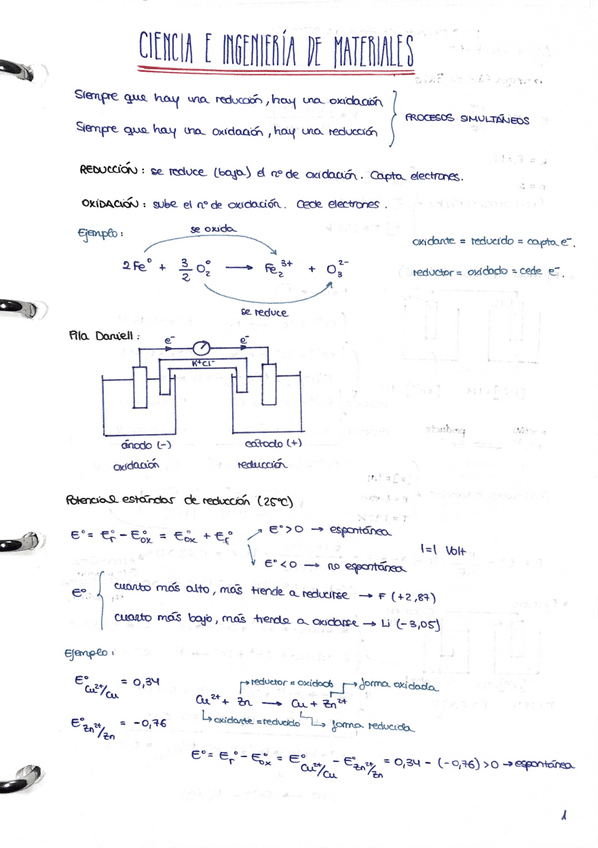 CIENCIA E INGENIERÍA DE MATERIALES
Siempre que hay una reducción, hay una oxidación
Siempre que hay una oxidación, hay una reducción
PROCESOS SIMULTÁNEOS
REDUCCIÓN: se reduce (baja) el nº de oxidación. Capta electrones.
OXIDACIÓN: sube el nº de oxidación. Cede electrones.
Ejemplo:
se oxida
2 Fe⁰ + 3/2 O₂⁰ → Fe₂³⁺ + O₃²⁻
se reduce
oxidante = reducido = capta e⁻.
reductor = oxidado = cede e⁻.
Pila Daniell:
e⁻ e⁻
K⁺Cl⁻
ánodo (-) cátodo (+)
oxidación reducción
Potencial estándar de reducción (25ºC)
E° = E°r - E°ox = E°ox + E°r
E° > 0 → espontánea
E° < 0 → no espontánea
1=1 Volt
E°
cuanto más alto, más tiende a reducirse → F (+2,87)
cuanto más bajo, más tiende a oxidarse → Li (-3,05)
Ejemplo:
E°Cu²⁺/Cu = 0,34
E°Zn²⁺/Zn = -0,76
reductor = oxidado forma oxidada
Cu²⁺ + Zn → Cu + Zn²⁺
oxidante = reducido forma reducida
E° = Er° - E°ox = E°Cu²⁺/Cu - E°Zn²⁺/Zn = 0,34 - (-0,76) > 0 → espontánea
1